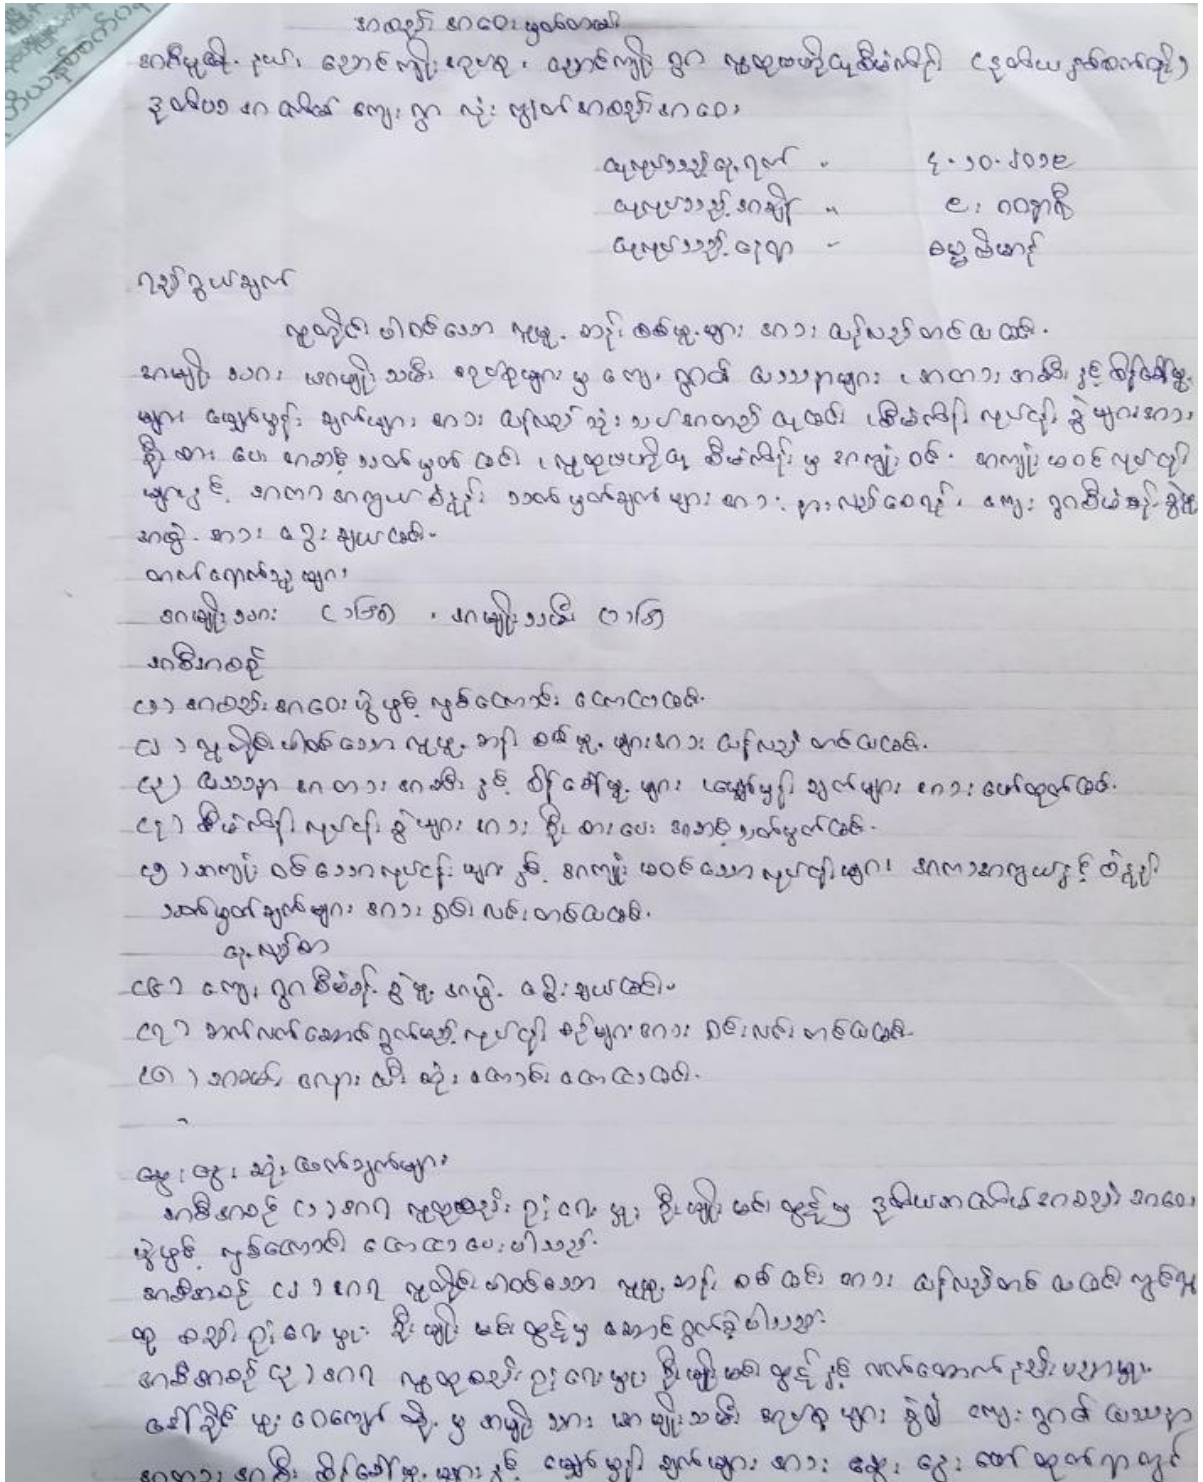 အစည်းအဝေးမှတ်တမ်း
ကျောင်းကျိုးအုပ်စု၊ ချောင်ကျိုးရွာ လူထုဗဟိုပြုစီမံကိန်း (ဒုတိယနှစ်စက်ဝိုင်း)
ဒုတိယအကြိမ် ကျေးရွာလုံးကျွတ်အစည်းအဝေး
ပြုလုပ်သည့်နေ့ရက် - ၄.၁၀.၂၀၁၉
ပြုလုပ်သည့်အချိန် - ၉း၀၀နာရီ
ပြုလုပ်သည့်နေရာ - ဓမ္မာရုံ
ရည်ရွယ်ချက်
လူတိုင်းပါဝင်သော လူမှုဆန်းစစ်မှုများအား ပြန်လည်တင်ပြခြင်း.
အမျိုးသား၊ အမျိုးသမီး အုပ်စုများမှ ကျေးရွာ၏ ပြဿနာများ၊ အတားအဆီးနှင့် စိန်ခေါ်မှု
များ၊ မျှော်မှန်းချက်များအား ပြန်လည်သုံးသပ်အတည်ပြုခြင်း၊ စီမံကိန်းလုပ်ငန်းခွဲများအား
ဦးစားပေးအဆင့်သတ်မှတ်ခြင်း၊ လူထုဗဟိုပြုစီမံကိန်းမှ အကျုံးဝင်၊ အကျုံးမဝင်လုပ်ငန်း
များနှင့် အကာအကွယ်စံနှုန်းသတ်မှတ်ချက်များအား နားလည်စေရန်၊ ကျေးရွာစီမံခန့်ခွဲမှု
အဖွဲ့အား ရွေးချယ်ခြင်း.
တက်ရောက်သူများ
အမျိုးသား အမျိုးသမီး
အစီအစဉ်
(၁) အစည်းအဝေးဖွင့်လှစ်ကြောင်း ကြေငြာခြင်း.
(၂) လူတိုင်းပါဝင်သော လူမှုဆန်းစစ်မှုများအား ပြန်လည်တင်ပြခြင်း.
(၃) ပြဿနာအတားအဆီးနှင့် စိန်ခေါ်မှုများ၊ မျှော်မှန်းချက်များအား ဖော်ထုတ်ခြင်း.
(၄) စီမံကိန်းလုပ်ငန်းခွဲများအား ဦးစားပေးအဆင့်သတ်မှတ်ခြင်း.
(၅) အကျုံးဝင်သောလုပ်ငန်းများနှင့် အကျုံးမဝင်သောလုပ်ငန်းများ၊ အကာအကွယ်နှင့်စံနှုန်း
သတ်မှတ်ချက်များအား ရှင်းလင်းတင်ပြခြင်း.
နေ့လည်စာ
(၆) ကျေးရွာစီမံခန့်ခွဲမှုအဖွဲ့ ရွေးချယ်ခြင်း.
(၇) ဆက်လက်ဆောင်ရွက်မည့်လုပ်ငန်းစဉ်များအား ရှင်းလင်းတင်ပြခြင်း.
(၈) အခမ်းအနားပြီးဆုံးကြောင်း ကြေငြာခြင်း.
ဆွေးနွေးဆုံးဖြတ်ချက်များ
အစီအစဉ် (၁) အရ လူထုစည်းရုံးရေးမှူး ဦးမျိုးမင်းထွန်းမှ ဒုတိယအကြိမ်အစည်းအဝေး
ဖွင့်လှစ်ကြောင်း ကြေငြာပေးပါသည်.
အစီအစဉ် (၂) အရ လူတိုင်းပါဝင်သော လူမှုဆန်းစစ်ခြင်းအား ပြန်လည်တင်ပြခြင်းတွင် လူ
ထုစည်းရုံးရေးမှူး ဦးမျိုးမင်းထွန်းမှ ဆောင်ရွက်ခဲ့ပါသည်.
အစီအစဉ် (၃) အရ လူထုစည်းရုံးရေးမှူး ဦးမျိုးမင်းထွန်းနှင့် လက်ထောက်နည်းပညာမှူး
ဒေါ်ခိုင်မှုးဝေကျော်တို့မှ အမျိုးသား၊ အမျိုးသမီး အုပ်စုများခွဲ၍ ကျေးရွာ၏ ပြဿနာ
အတားအဆီး၊ စိန်ခေါ်မှုများနှင့် မျှော်မှန်းချက်များအား ဆွေးနွေးဖော်ထုတ်ရာတွင်